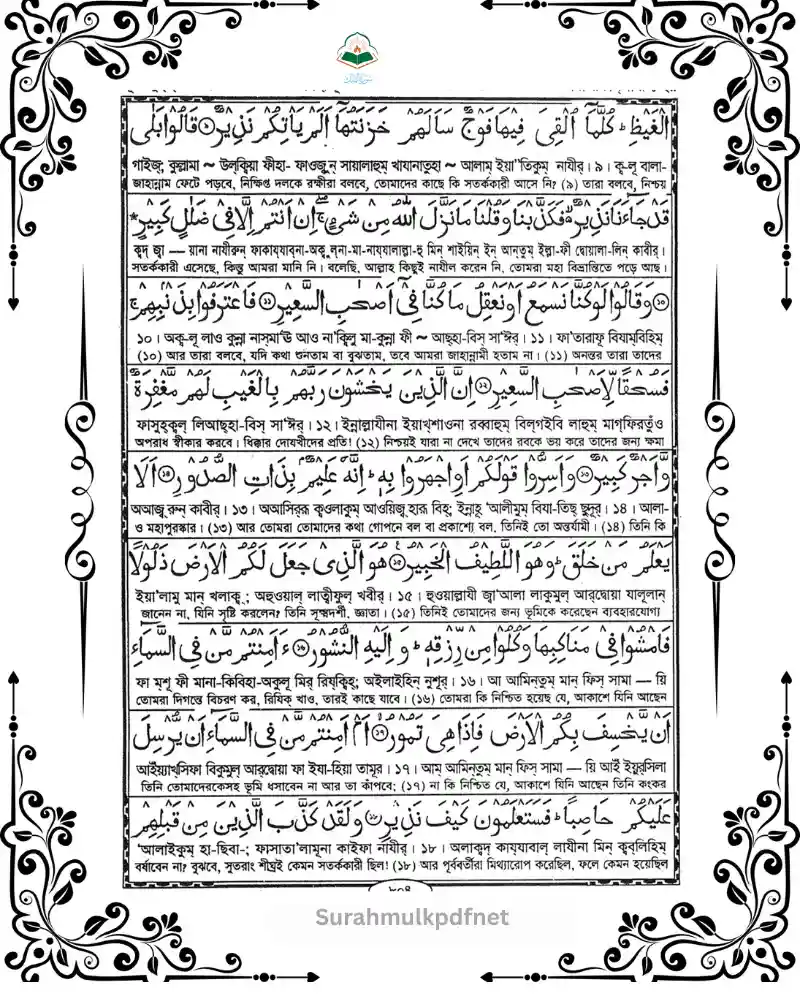 الْغَيْظِ ؕ كُلَّمَاۤ اُلْقِیَ فِيْهَا فَوْجٌ سَاَلَهُمْ خَزَنَتُهَاۤ اَلَمْ يَاْتِكُمْ نَذِيْرٌ ۝٨ قَالُوْا بَلٰى
গাইজ্; কুল্লামা ~ উল্‌ক্বিয়া ফীহা- ফাওজুন্ সায়ালাহুম্ খাযানাতুহা ~ আলাম্ ইয়া’তিকুম্ নাযীর্। ৯। ক্ব-লূ বালা-
জাহান্নাম ফেটে পড়বে, নিক্ষিপ্ত দলকে রক্ষীরা বলবে, তোমাদের কাছে কি সতর্ককারী আসে নি? (৯) তারা বলবে, নিশ্চয়
قَدْ جَآءَنَا نَذِيْرٌ ۙ فَكَذَّبْنَا وَقُلْنَا مَا نَزَّلَ اللّٰهُ مِنْ شَیْءٍ ۖ اِنْ اَنْتُمْ اِلَّا فِیْ ضَلٰلٍ كَبِيْرٍ
ক্বদ্ জ্বা — য়ানা নাযীরুন্ ফাকায্‌যাব্‌না-অক্বুল্‌না-মা-নায্‌যালাল্লা-হু মিন্ শাইয়িন্ ইন্ আন্‌তুম্ ইল্লা-ফী দ্বোয়ালা-লিন্ কাবীর্।
সতর্ককারী এসেছে, কিন্তু আমরা মানি নি। বলেছি, আল্লাহ কিছুই নাযীল করেন নি, তোমরা মহা বিভ্রান্তিতে পড়ে আছ।
۝١٠ وَقَالُوْا لَوْ كُنَّا نَسْمَعُ اَوْ نَعْقِلُ مَا كُنَّا فِیْۤ اَصْحٰبِ السَّعِيْرِ ۝١١ فَاعْتَرَفُوْا بِذَنْۢبِهِمْ ۚ
১০। অক্ব-লূ লাও কুন্না নাস্‌মা‘উ আও না‘ক্বিলু মা-কুন্না ফী ~ আছ্‌হা-বিস্ সা‘ঈর্। ১১। ফা‘তারাফূ বিযাম্‌বিহিম্
(১০) আর তারা বলবে, যদি কথা শুনতাম বা বুঝতাম, তবে আমরা জাহান্নামী হতাম না। (১১) অনন্তর তারা তাদের
فَسُحْقًا لِّاَصْحٰبِ السَّعِيْرِ ۝١٢ اِنَّ الَّذِيْنَ يَخْشَوْنَ رَبَّهُمْ بِالْغَيْبِ لَهُمْ مَّغْفِرَةٌ
ফাসুহ্‌ক্বল্ লিআছ্‌হা-বিস্ সা‘ঈর্। ১২। ইন্নাল্লাযীনা ইয়াখ্‌শাওনা রব্বাহুম্ বিল্‌গইবি লাহুম্ মাগ্‌ফিরতুঁও
অপরাধ স্বীকার করবে। ধিক্কার দোযখীদের প্রতি! (১২) নিশ্চয়ই যারা না দেখে তাদের রবকে ভয় করে তাদের জন্য ক্ষমা
وَّاَجْرٌ كَبِيْرٌ ۝١٣ وَاَسِرُّوْا قَوْلَكُمْ اَوِ اجْهَرُوْا بِهٖ ؕ اِنَّهٗ عَلِيْمٌۢ بِذَاتِ الصُّدُوْرِ ۝١٤ اَلَا
অআজ্ব্‌রুন্ কাবীর্। ১৩। অআসির্‌রূ ক্বওলাকুম্ আওয়িজ্ব্‌ হারূ বিহ্; ইন্নাহূ ‘আলীমুম্ বিযা-তিছ্ ছুদূর্। ১৪। আলা-
ও মহাপুরস্কার। (১৩) আর তোমরা তোমাদের কথা গোপনে বল বা প্রকাশ্যে বল, তিনিই তো অন্তর্যামী। (১৪) তিনি কি
يَعْلَمُ مَنْ خَلَقَ ؕ وَهُوَ اللَّطِيْفُ الْخَبِيْرُ ۝١٥ هُوَ الَّذِیْ جَعَلَ لَكُمُ الْاَرْضَ ذَلُوْلًا
ইয়া‘লামু মান্ খলাক্ব; অহুওয়াল্ লাত্বীফুল্ খবীর্। ১৫। হুওয়াল্লাযী জ্বা‘আলা লাকুমুল্ আর্‌দ্বোয়া যালূলান্
জানেন না, যিনি সৃষ্টি করলেন? তিনি সূক্ষ্মদর্শী, জ্ঞাতা। (১৫) তিনিই তোমাদের জন্য ভূমিকে করেছেন ব্যবহারযোগ্য
فَامْشُوْا فِیْ مَنَاكِبِهَا وَكُلُوْا مِنْ رِّزْقِهٖ ؕ وَاِلَيْهِ النُّشُوْرُ ۝١٦ ءَاَمِنْتُمْ مَّنْ فِی السَّمَآءِ
ফা ম্‌শূ ফী মানা-কিবিহা-অকুলূ মির্ রিয্‌ক্বিহ্; অইলাইহিন্ নুশূর্। ১৬। আ আমিন্‌তুম্ মান্ ফিস্ সামা — য়ি
তোমরা দিগন্তে বিচরণ কর, রিযিক্ খাও, তারই কাছে যাবে। (১৬) তোমরা কি নিশ্চিত হয়েছ যে, আকাশে যিনি আছেন
اَنْ يَّخْسِفَ بِكُمُ الْاَرْضَ فَاِذَا هِیَ تَمُوْرُ ۝١٧ اَمْ اَمِنْتُمْ مَّنْ فِی السَّمَآءِ اَنْ يُّرْسِلَ
আইঁয়্যাখ্‌সিফা বিকুমুল্ আর্‌দ্বোয়া ফা ইযা-হিয়া তামূর্। ১৭। আম্ আমিন্‌তুম্ মান্ ফিস্ সামা — য়ি আইঁ ইয়ুর্‌সিলা
তিনি তোমাদেরকেসহ ভূমি ধসাবেন না আর তা কাঁপবে; (১৭) না কি নিশ্চিত যে, আকাশে যিনি আছেন তিনি কংকর
عَلَيْكُمْ حَاصِبًا ؕ فَسَتَعْلَمُوْنَ كَيْفَ نَذِيْرِ ۝١٨ وَلَقَدْ كَذَّبَ الَّذِيْنَ مِنْ قَبْلِهِمْ
‘আলাইকুম্ হা-ছিবা-; ফাসাতা‘লামূনা কাইফা নাযীর্। ১৮। অলাক্বদ্ কায্‌যাবাল্ লাযীনা মিন্ ক্বব্‌লিহিম্
বর্ষাবেন না? বুঝবে, সুতরাং শীঘ্রই কেমন সতর্ককারী ছিল! (১৮) আর পূর্ববর্তীরা মিথ্যারোপ করেছিল, ফলে কেমন হয়েছিল
৮০৪
Surahmulkpdfnet